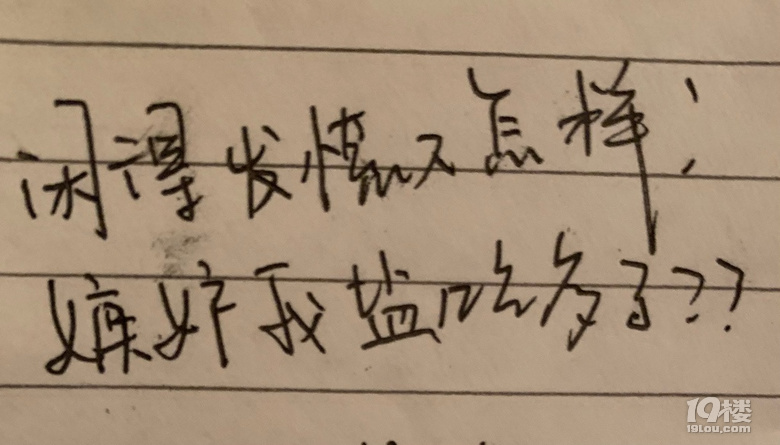 闲得发慌又怎样!
嫉妒我盐吃多了??
19楼
19lou.com